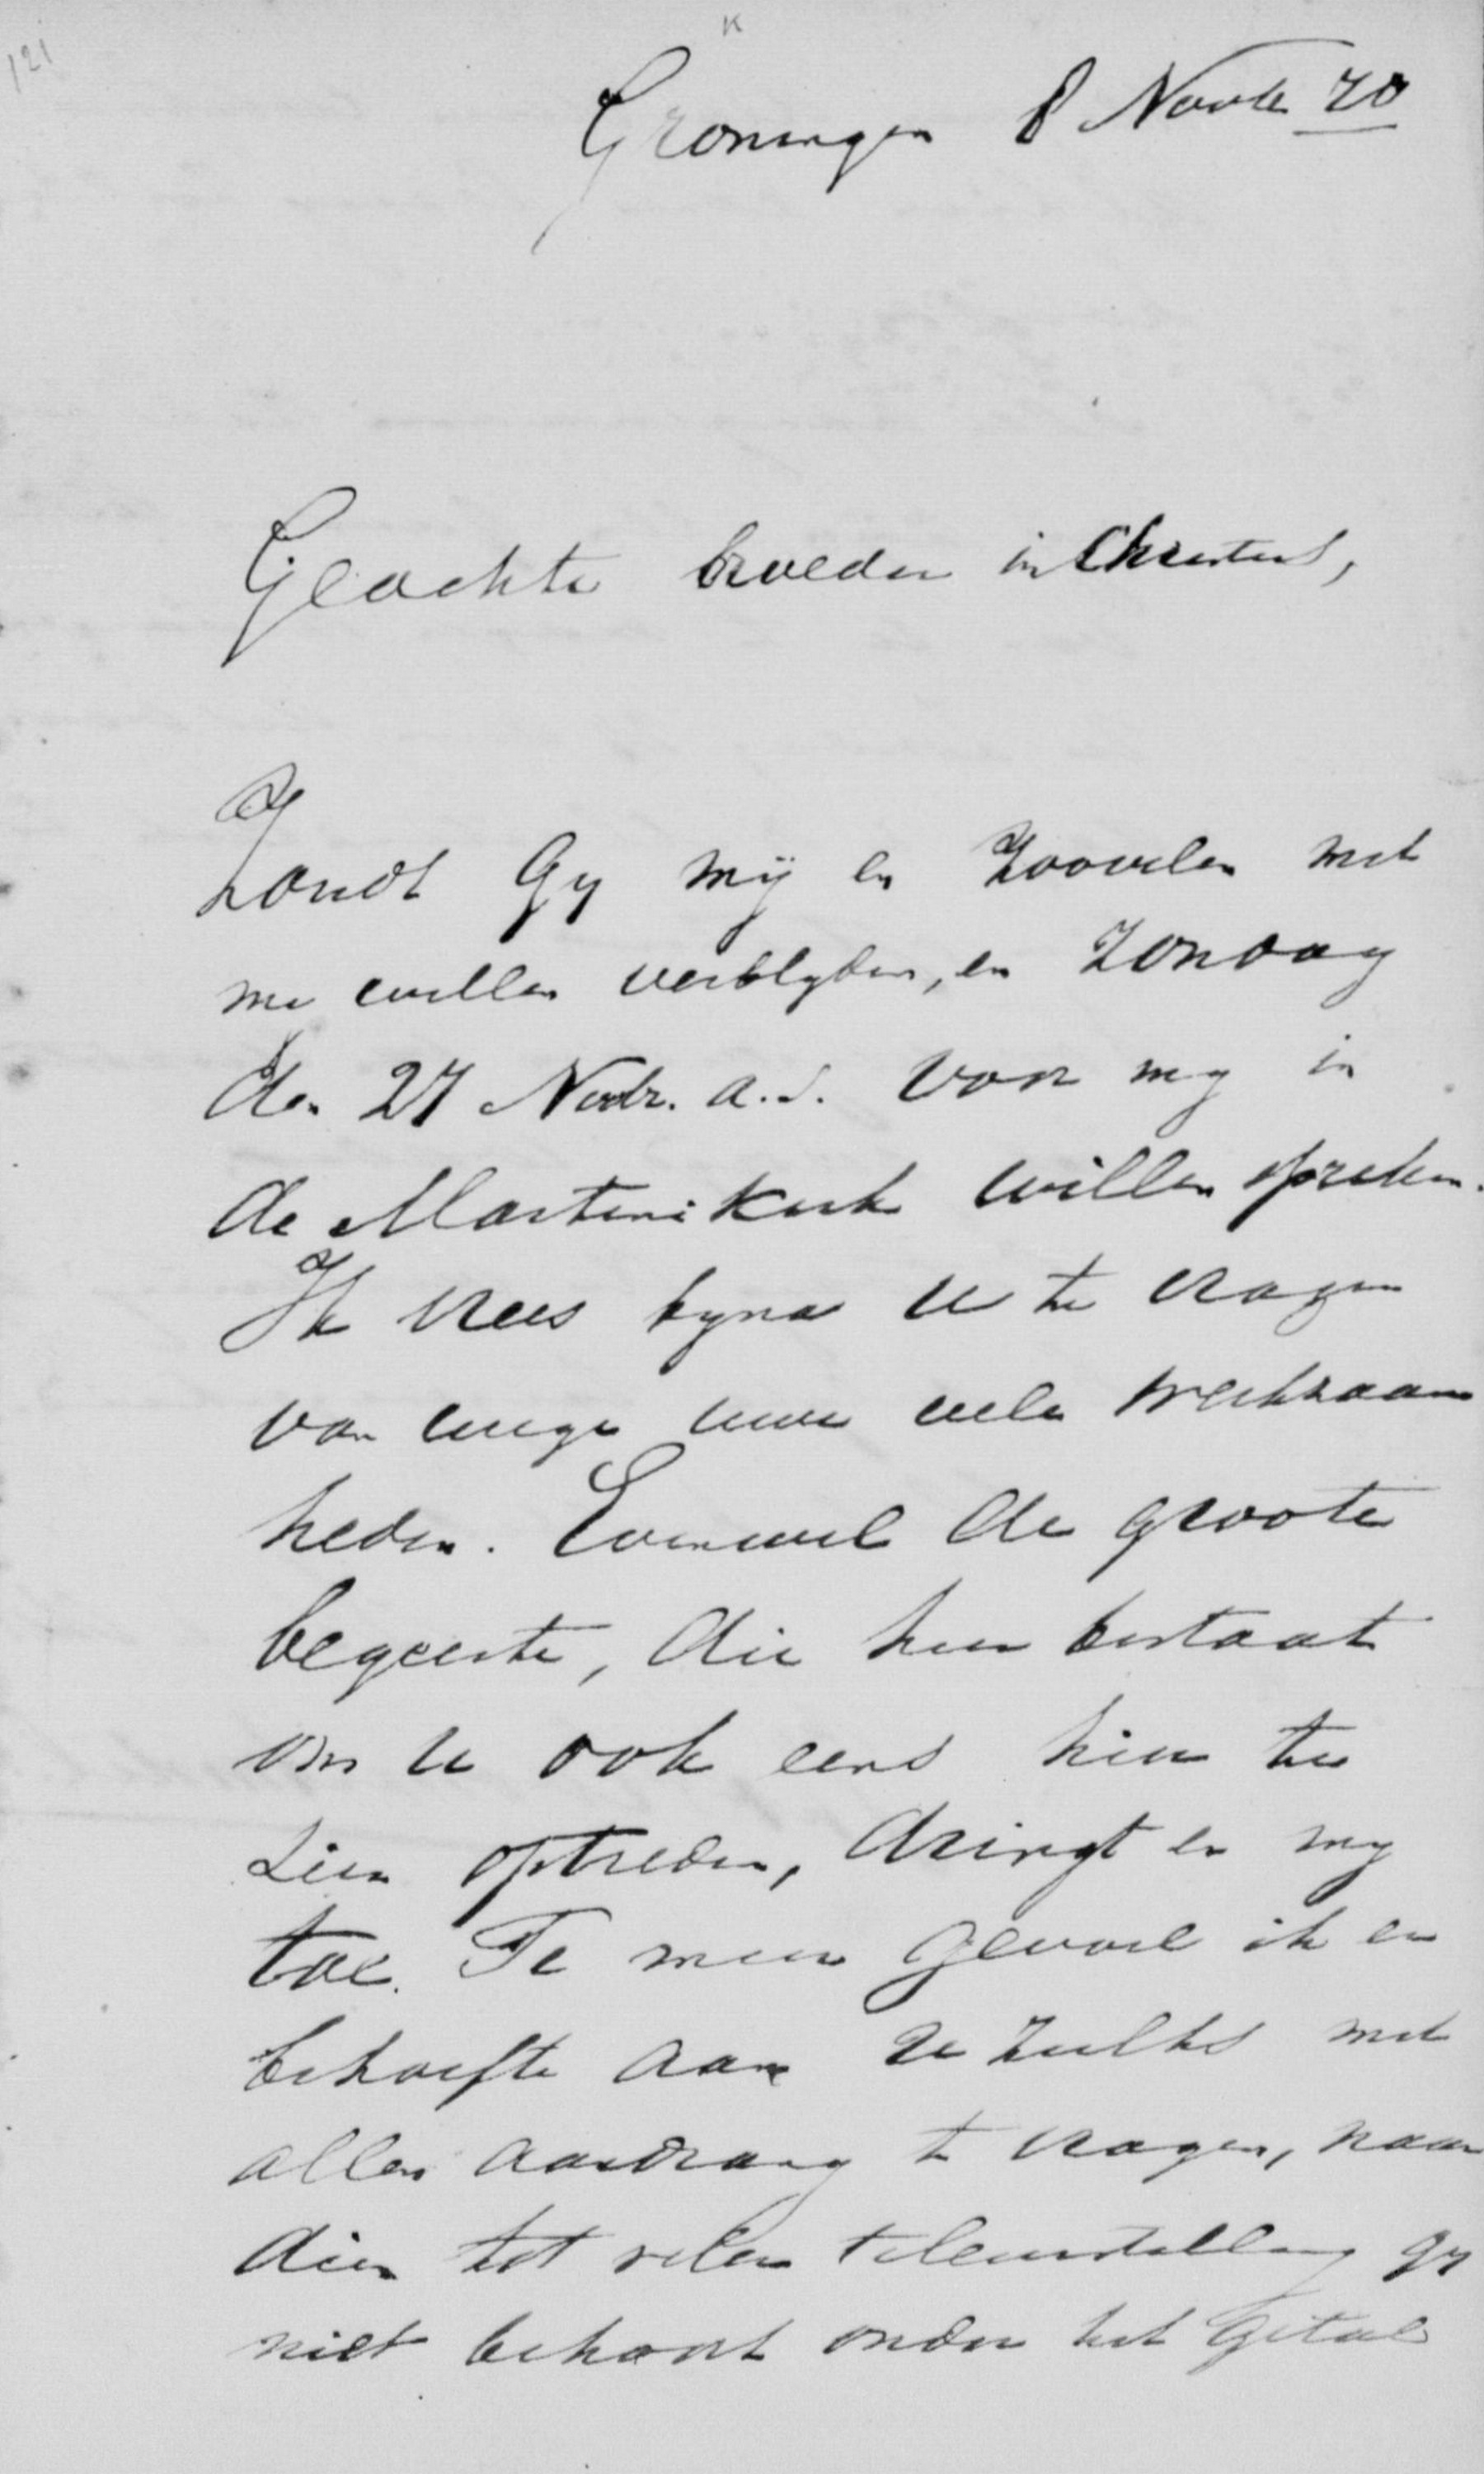 121
K
Groningen 8 Novbr 70
Geachte broeder in Christus,
Zoudt Gy mij en zoovelen met
me willen verblyden, en Zondag
den 27 Novbr. a.s. voor my in
de Martinikerk willen spreken.
Ik vrees byna U te vragen
van wege uwe vele werkzaam
heden. Evenwel de groote
begeerte, die hier bestaat
om U ook eens hier te
zien optreden, dringt er my
toe. Te meer gevoel ik er
behoefte aan U zulks met
allen aandrang te vragen, naar
dien tot veler teleurstelling gy
niet behoort onder het getal